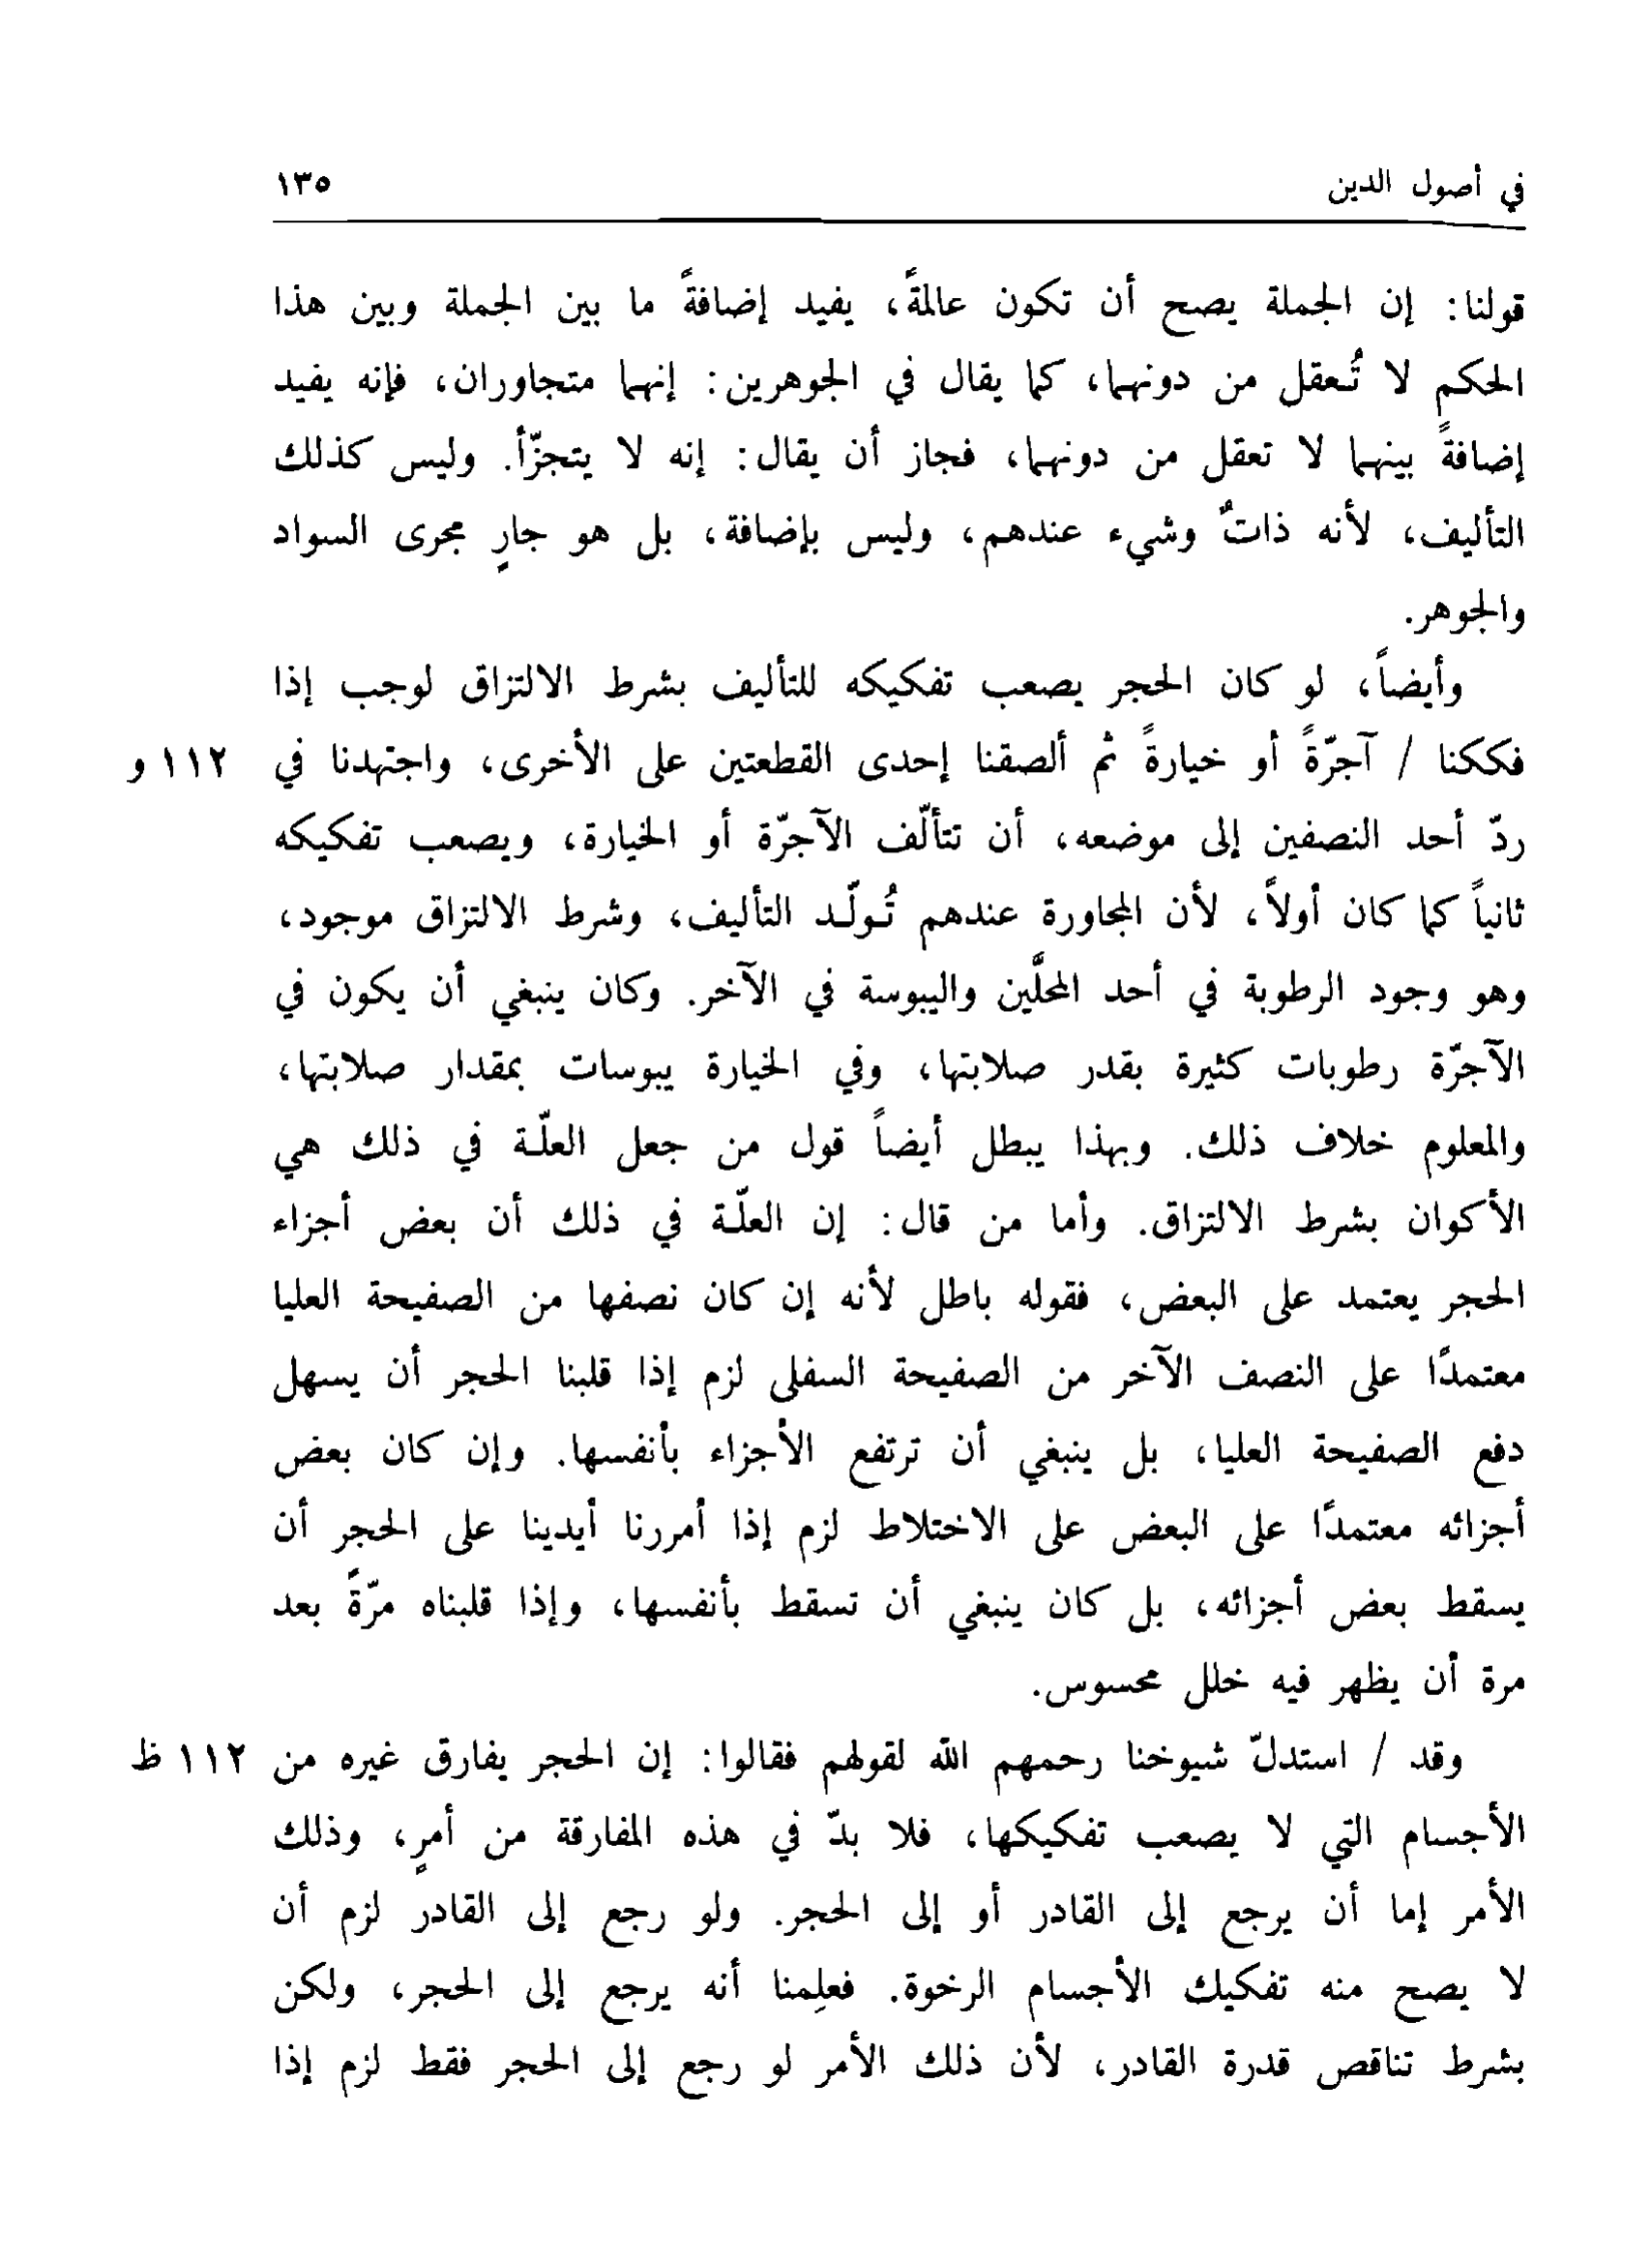 في أصول الدين ١٣٥
قولنا: إن الجملة يصح أن تكون عالمةً، يفيد إضافةً ما بين الجملة وبين هذا
الحكم لا تُعقل من دونهما، كما يقال في الجوهرين: إنهما متجاوران، فإنه يفيد
إضافةً بينهما لا تعقل من دونهما، فجاز أن يقال: إنه لا يتجزّأ. وليس كذلك
التأليف، لأنه ذاتٌ وشيء عندهم، وليس بإضافة، بل هو جارٍ مجرى السواد
والجوهر.
وأيضاً، لو كان الحجر يصعب تفكيكه للتأليف بشرط الالتزاق لوجب إذا
فككنا / آجرّةً أو خيارةً ثم ألصقنا إحدى القطعتين على الأخرى، واجتهدنا في ١١٢ و
ردّ أحد النصفين إلى موضعه، أن تتألّف الآجرّة أو الخيارة، ويصعب تفكيكه
ثانياً كما كان أولاً، لأن المجاورة عندهم تُولّد التأليف، وشرط الالتزاق موجود،
وهو وجود الرطوبة في أحد المحلَّين واليبوسة في الآخر. وكان ينبغي أن يكون في
الآجرّة رطوبات كثيرة بقدر صلابتها، وفي الخيارة يبوسات بمقدار صلابتها،
والمعلوم خلاف ذلك. وبهذا يبطل أيضاً قول من جعل العلّة في ذلك هي
الأكوان بشرط الالتزاق. وأما من قال: إن العلّة في ذلك أن بعض أجزاء
الحجر يعتمد على البعض، فقوله باطل لأنه إن كان نصفها من الصفيحة العليا
معتمدًا على النصف الآخر من الصفيحة السفلى لزم إذا قلبنا الحجر أن يسهل
دفع الصفيحة العليا، بل ينبغي أن ترتفع الأجزاء بأنفسها. وإن كان بعض
أجزائه معتمدًا على البعض على الاختلاط لزم إذا أمررنا أيدينا على الحجر أن
يسقط بعض أجزائه، بل كان ينبغي أن تسقط بأنفسها، وإذا قلبناه مرّةً بعد
مرة أن يظهر فيه خلل محسوس.
وقد / استدلّ شيوخنا رحمهم الله لقولهم فقالوا: إن الحجر يفارق غيره من ١١٢ ظ
الأجسام التي لا يصعب تفكيكها، فلا بدّ في هذه المفارقة من أمرٍ، وذلك
الأمر إما أن يرجع إلى القادر أو إلى الحجر. ولو رجع إلى القادر لزم أن
لا يصح منه تفكيك الأجسام الرخوة. فعلِمنا أنه يرجع إلى الحجر، ولكن
بشرط تناقص قدرة القادر، لأن ذلك الأمر لو رجع إلى الحجر فقط لزم إذا